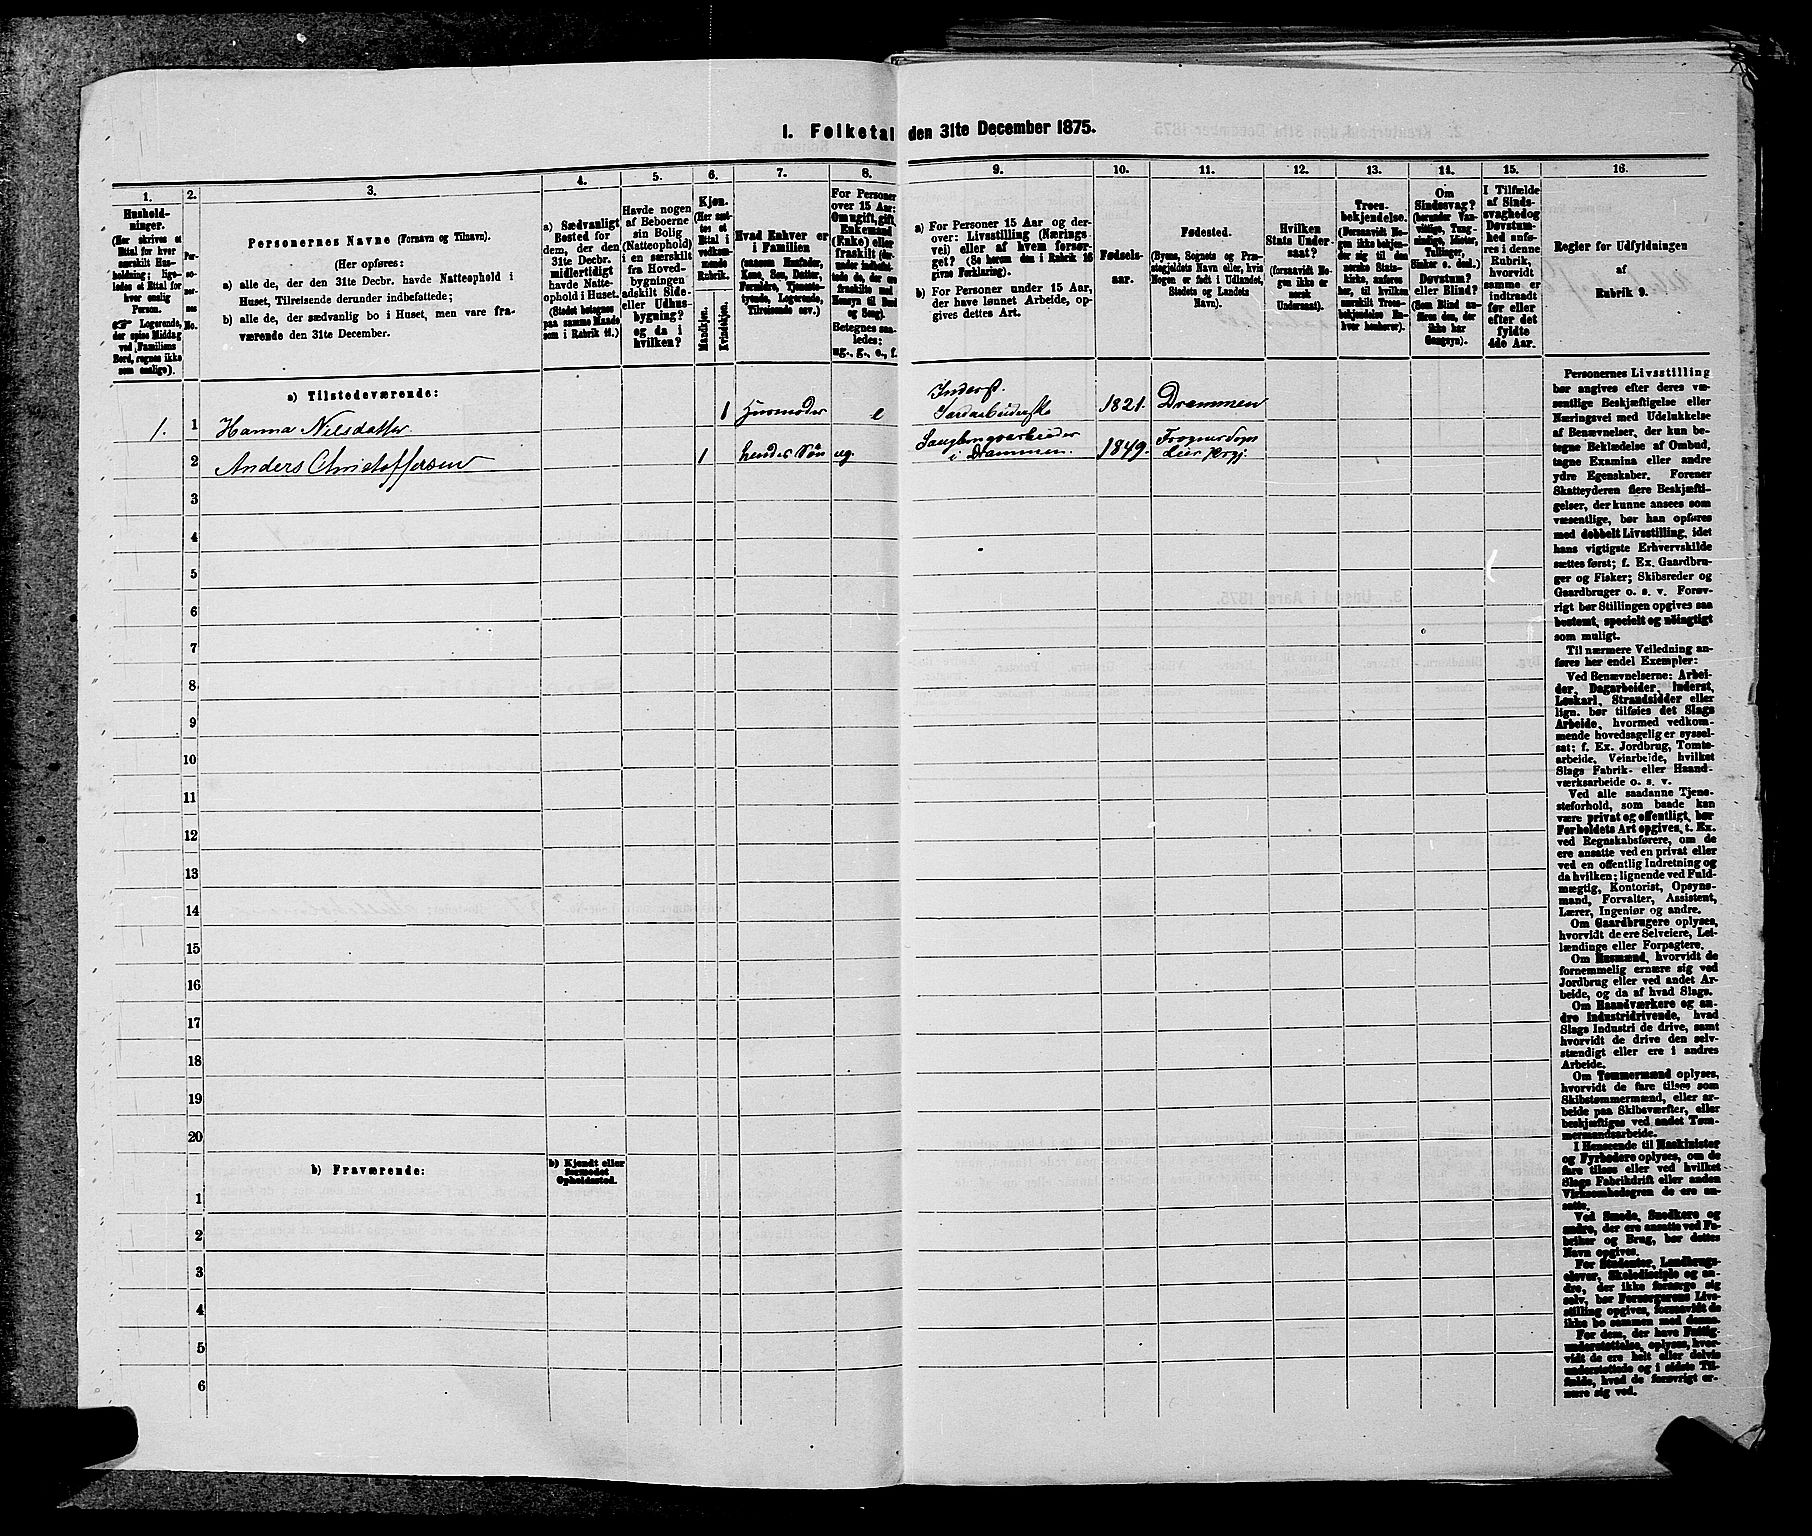 I. Folketal den 31te December 1875.
1.
Hushold-
ninger.
(Her skrives et
Ettal for hver
særskilt Hus-
holdning; lige-
ledes et Ettal for
hver enslig
Person.
☞ Logerende,
der spise Middag
ved Familiens
Bord, regnes ikke
som enslige).
2.
Per-
so-
ner-
nes
No.
3.
Personernes Navne (Fornavn og Tilnavn).
(Her opføres:
a) alle de, der den 31te Decbr. havde Natteophold i
Huset, Tilreisende derunder indbefattede;
b) alle de, der sædvanlig bo i Huset, men vare fra-
værende den 31te December.
4.
a) Sædvanligt
Bosted for
dem, der den
31te Decbr.
midlertidigt
havde Natte-
ophold i Huset.
(Stedet betegnes
paa samme Maade
som i Rubrik 11.)
5.
Havde nogen
af Beboerne
sin Bolig
(Natteophold)
i en særskilt
fra Hoved-
bygningen
adskilt Side-
eller Udhus-
bygning?
og da i
hvilken?
6.
Kjøn.
(Her sæt-
tes et
Ettal i
vedkom-
mende
Rubrik.
Mandkjøn.
Kvindekjøn.
7.
Hvad Enhver er
i Familien
(saasom Husfader,
Kone, Søn, Datter,
Forældre, Tjeneste-
tyende, Logerende,
Tilreisende osv.)
8.
For Personer
over 15 Aar:
Om ugift, gift,
Enkemand
(Enke) eller
fraskilt
Betegnes saa-
ledes:
ug., g., e., f.
9.
a) For Personer 15 Aar og der-
over: Livsstilling (Nærings-
vei) eller af hvem forsør-
get? (Se herom den i Rubrik 16
givne Forklaring).
b) For Personer under 15 Aar,
der have lønnet Arbeide, op-
gives dettes Art.
10.
Fødsels-
aar.
11.
Fødested.
(Byens, Sognets og Præ-
stegjeldets Navn eller, hvis
Nogen er født i Udlandet,
Stedets og Landets
Navn).
12.
Hvilken
Stats Under-
saat?
(forsaavidt No-
gen ikke er
norsk
Undersaat).
13.
Troes-
bekjendelse.
(Forsaavidt No-
gen ikke bekjen-
der sig til den
norske Stats-
kirke, anføres
her, til hvilken
Troes-
bekjendelse En-
hver henhører).
14.
Om
Sindssvag?
(herunder Van-
vittige, Tung-
sindige, Idioter,
Tullinger,
Sinker o. desl.)
Døvstum?
eller Blind?
(Som Blind an-
føres den, der
ikke har
Gangsyn).
15.
I Tilfælde
af Sinds-
svaghed og
Døvstum-
hed anfø-
res i denne
Rubrik,
hvorvidt
samme er
indtraadt
før eller
efter det
fyldte
4de Aar.
16.
Regler for Udfyldningen
af
Rubrik 9.
a) Tilstedeværende:
1. 1 Hanna Nilsdatter 1 Husmoder e Inderst. Jordarbeiderske 1821. Drammen
2 Anders Christoffersen 1 hendes Søn ug. Saugbrugsarbeider i Drammen. 1849. Frogner Sogn Lier Prgj.
3
4
5
6
7
8
9
10
11
12
13
14
15
16
17
18
19
20
b) Fraværende:
b) Kjendt eller
formodet
Opholdssted.
1
2
3
4
5
6
Personernes Livsstilling
bør angives efter deres væ-
sentlige Beskjæftigelse eller
Næringsvei med Udelukkelse
af Benævnelser, der kun be-
tegne Beklædelse af Ombud,
tagne Examina eller andre
ydre Egenskaber. Forener
Skatteyderen flere Beskjæfti-
gelser, der kunne ansees som
væsentlige, bør han opføres
med dobbelt Livsstilling, idet
hans vigtigste Erhvervskilde
sættes først; f. Ex. Gaardbru-
ger og Fisker; Skibsreder og
Gaardbruger o. s. v. Forøv-
rigt bør Stillingen opgives saa
bestemt, specielt og nøiagtigt
som muligt.
Til nærmere Veiledning an-
føres her endel Exempler:
Ved Benævnelserne: Arbei-
der, Dagarbeider, Inderst,
Løskarl, Strandsidder eller
lign. bør tilføies det Slags
Arbeide, hvormed vedkom-
mende hovedsagelig er syssel-
sat; f. Ex. Jordbrug, Tomte-
arbeide, Veiarbeide, hvilket
Slags Fabrik- eller Haand-
værksarbeide o. s. v.
Ved alle saadanne Tjene-
steforhold, som baade kan
være privat og offentligt, bør
Forholdets Art opgives, t. Ex.
ved Regnskabsførere, om de
ere ansatte ved en privat eller
ved en offentlig Indretning og
da hvilken; lignende ved Fuld-
mægtig, Kontorist, Opsyns-
mand, Forvalter, Assistent,
Lærer, Ingeniør og andre.
Om Gaardbrugere oplyses,
hvorvidt de ere Selveiere, Lei-
lændinge eller Forpagtere.
Om Husmænd, hvorvidt de
fornemmelig ernære sig ved
Jordbrug eller ved andet Ar-
beide, og da af hvad Slags.
Om Haandværkere og an-
dre Industridrivende, hvad
Slags Industri de drive, samt
hvorvidt de drive den selv-
stændigt eller ere i andres
Arbeide.
Om Tømmermænd oplyses,
hvorvidt de fare tilsøs som
Skibstømmermænd, eller ar-
beide paa Skibsværfter, eller
beskjæftiges ved andet Tøm-
mermandsarbeide.
I Henseende til Maskinister
og Fyrbødere oplyses, om de
fare tilsøs eller ved hvilket
Slags Fabrikdrift eller anden
Virksomhedsgren de ere an-
satte.
Ved Smede, Snedkere og
andre, der ere ansatte ved Fa-
briker og Brug, bør dettes
Navn opgives.
For Studenter, Landbrugs-
elever, Skoledisciple og an-
dre, der ikke forsørge sig
selv, bør Forsørgerens Liv-
stilling opgives, forsaavidt de
ikke bo sammen med denne.
For dem, der have Fattig-
understøttelse, oplyses, hvor-
vidt de ere helt eller delvis
understøttede og i sidste Til-
fælde, hvad de forøvrigt er-
nære sig ved.